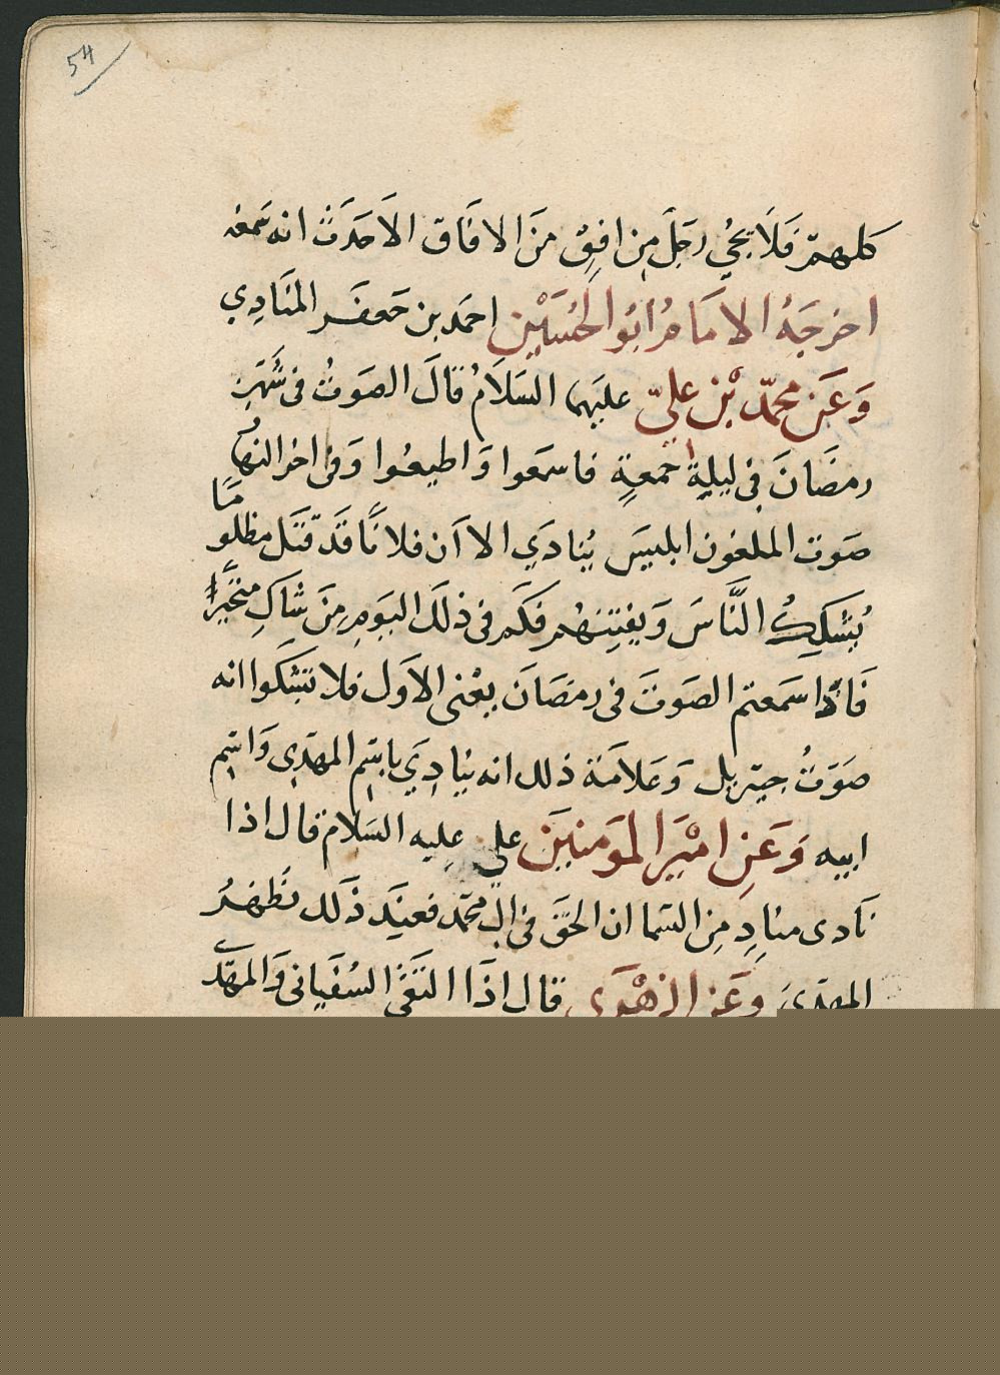 54
كلهم فلا يجي رجل من افق من الافاق الا حدث انه سمعه
اخرجه الامام ابو الحسين احمد بن جعفر المنادي
وعن محمد بن علي عليهما السلام قال الصوت في شهر
رمضان في ليلة جمعة فاسمعوا واطيعوا وفي اخر النهار
صوت الملعون ابليس ينادي الا ان فلانا قد قتل مظلوما
يشكك الناس ويفتنهم فكم في ذلك اليوم من شاك متحير
فاذا سمعتم الصوت في رمضان يعني الاول فلا تشكوا انه
صوت جبريل وعلامة ذلك انه ينادي باسم المهدي واسم
ابيه وعن امير المومنين علي عليه السلام قال اذا
نادى مناد من السما ان الحق في ال محمد فعند ذلك يظهر
المهدي وعن الزهري قال اذا التقى السفياني والمهدي